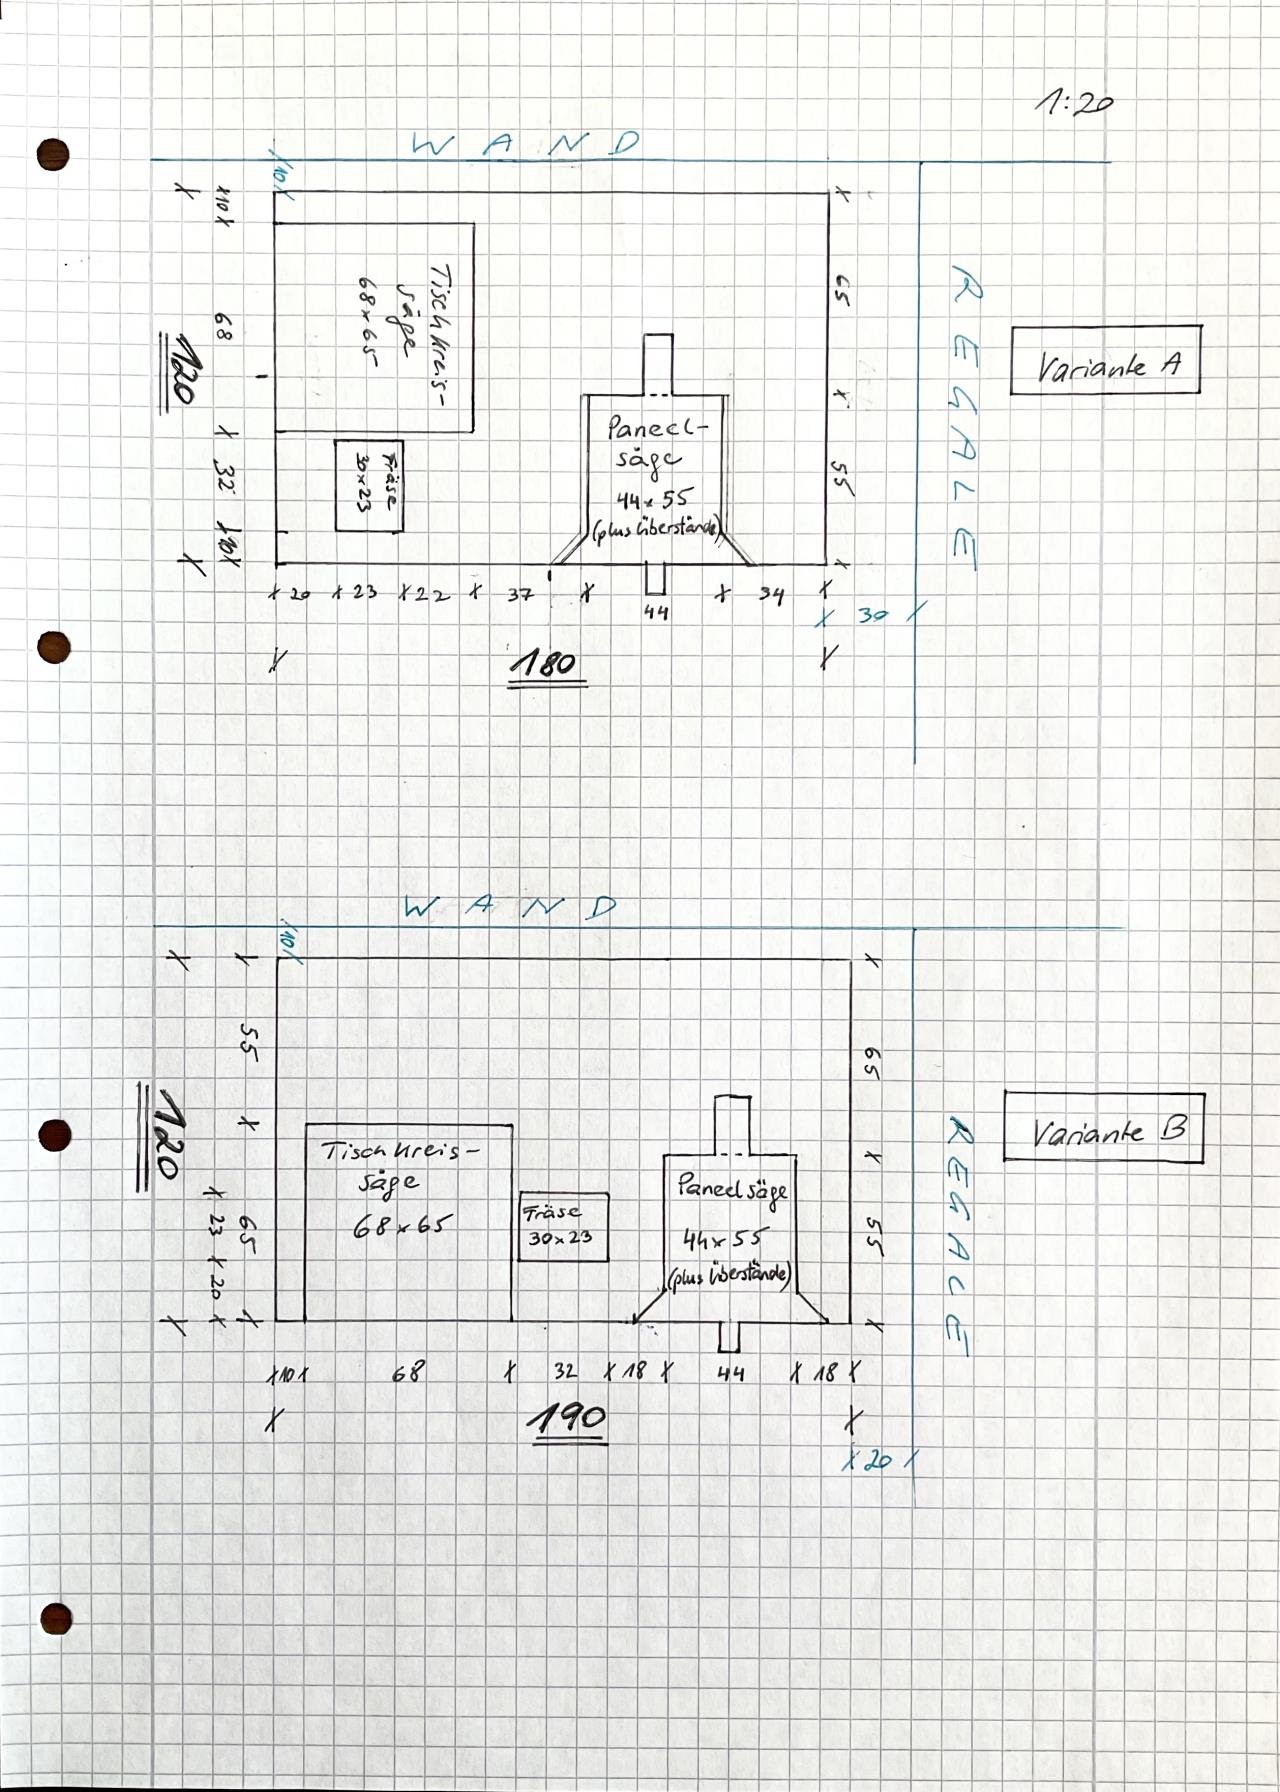 1:20
WAND
10
10
65
68
Tischkreis-
säge
68x65
120
REGALE
Variante A
Paneel-
säge
44x55
(plus Überstände)
32
Fräse
30x23
55
10
20 23 22 37 44 34
30
180
WAND
10
55
65
Tischkreis-
säge
68x65
120
REGALE
Variante B
Paneelsäge
44x55
(plus Überstände)
Fräse
30x23
65
23 20
55
10 68 32 18 44 18
190
20